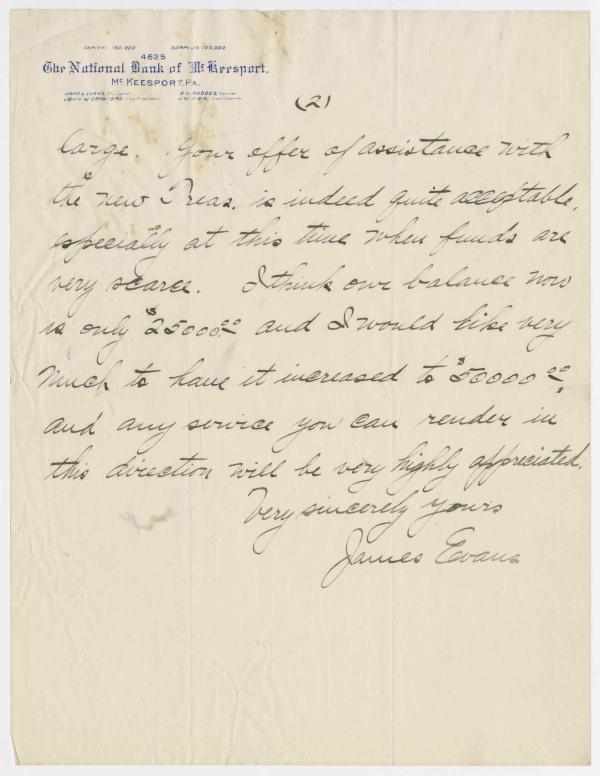 CAPITAL 150,000 SURPLUS 150,000
4625
The National Bank of McKeesport.
McKEESPORT, PA.
JAMES EVANS, President
JOHN W. CRAWFORD, Vice President
D. W. RHODES, Cashier
(2)
large. Your offer of assistance with
the new Treas. is indeed quite acceptable,
especially at this time when funds are
very scarce. I think our balance now
is only $25000.00 and I would like very
much to have it increased to $50000.00,
and any service you can render in
this direction will be very highly appreciated.
Very sincerely yours
James Evans